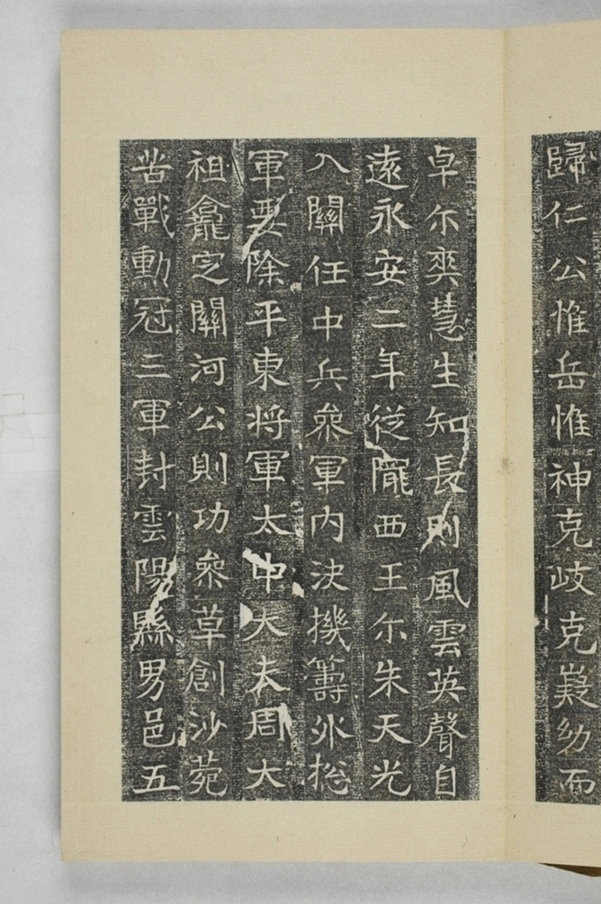 歸仁公惟岳惟神克岐克嶷幼而
卓尒奕慧生知長則風雲英聲自
遠永安二年從隴西王尒朱天光
入關任中兵叅軍內決機籌外捴
軍要除平東将軍太中大夫周大
祖龕定關河公則功叅草創沙菀
苦戰勳冠三軍封雲陽縣男邑五